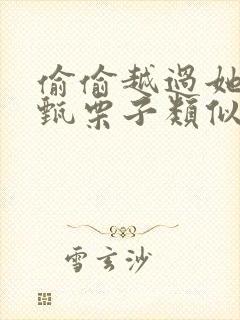 偷偷越過她
甄栗子類似
雪玄沙